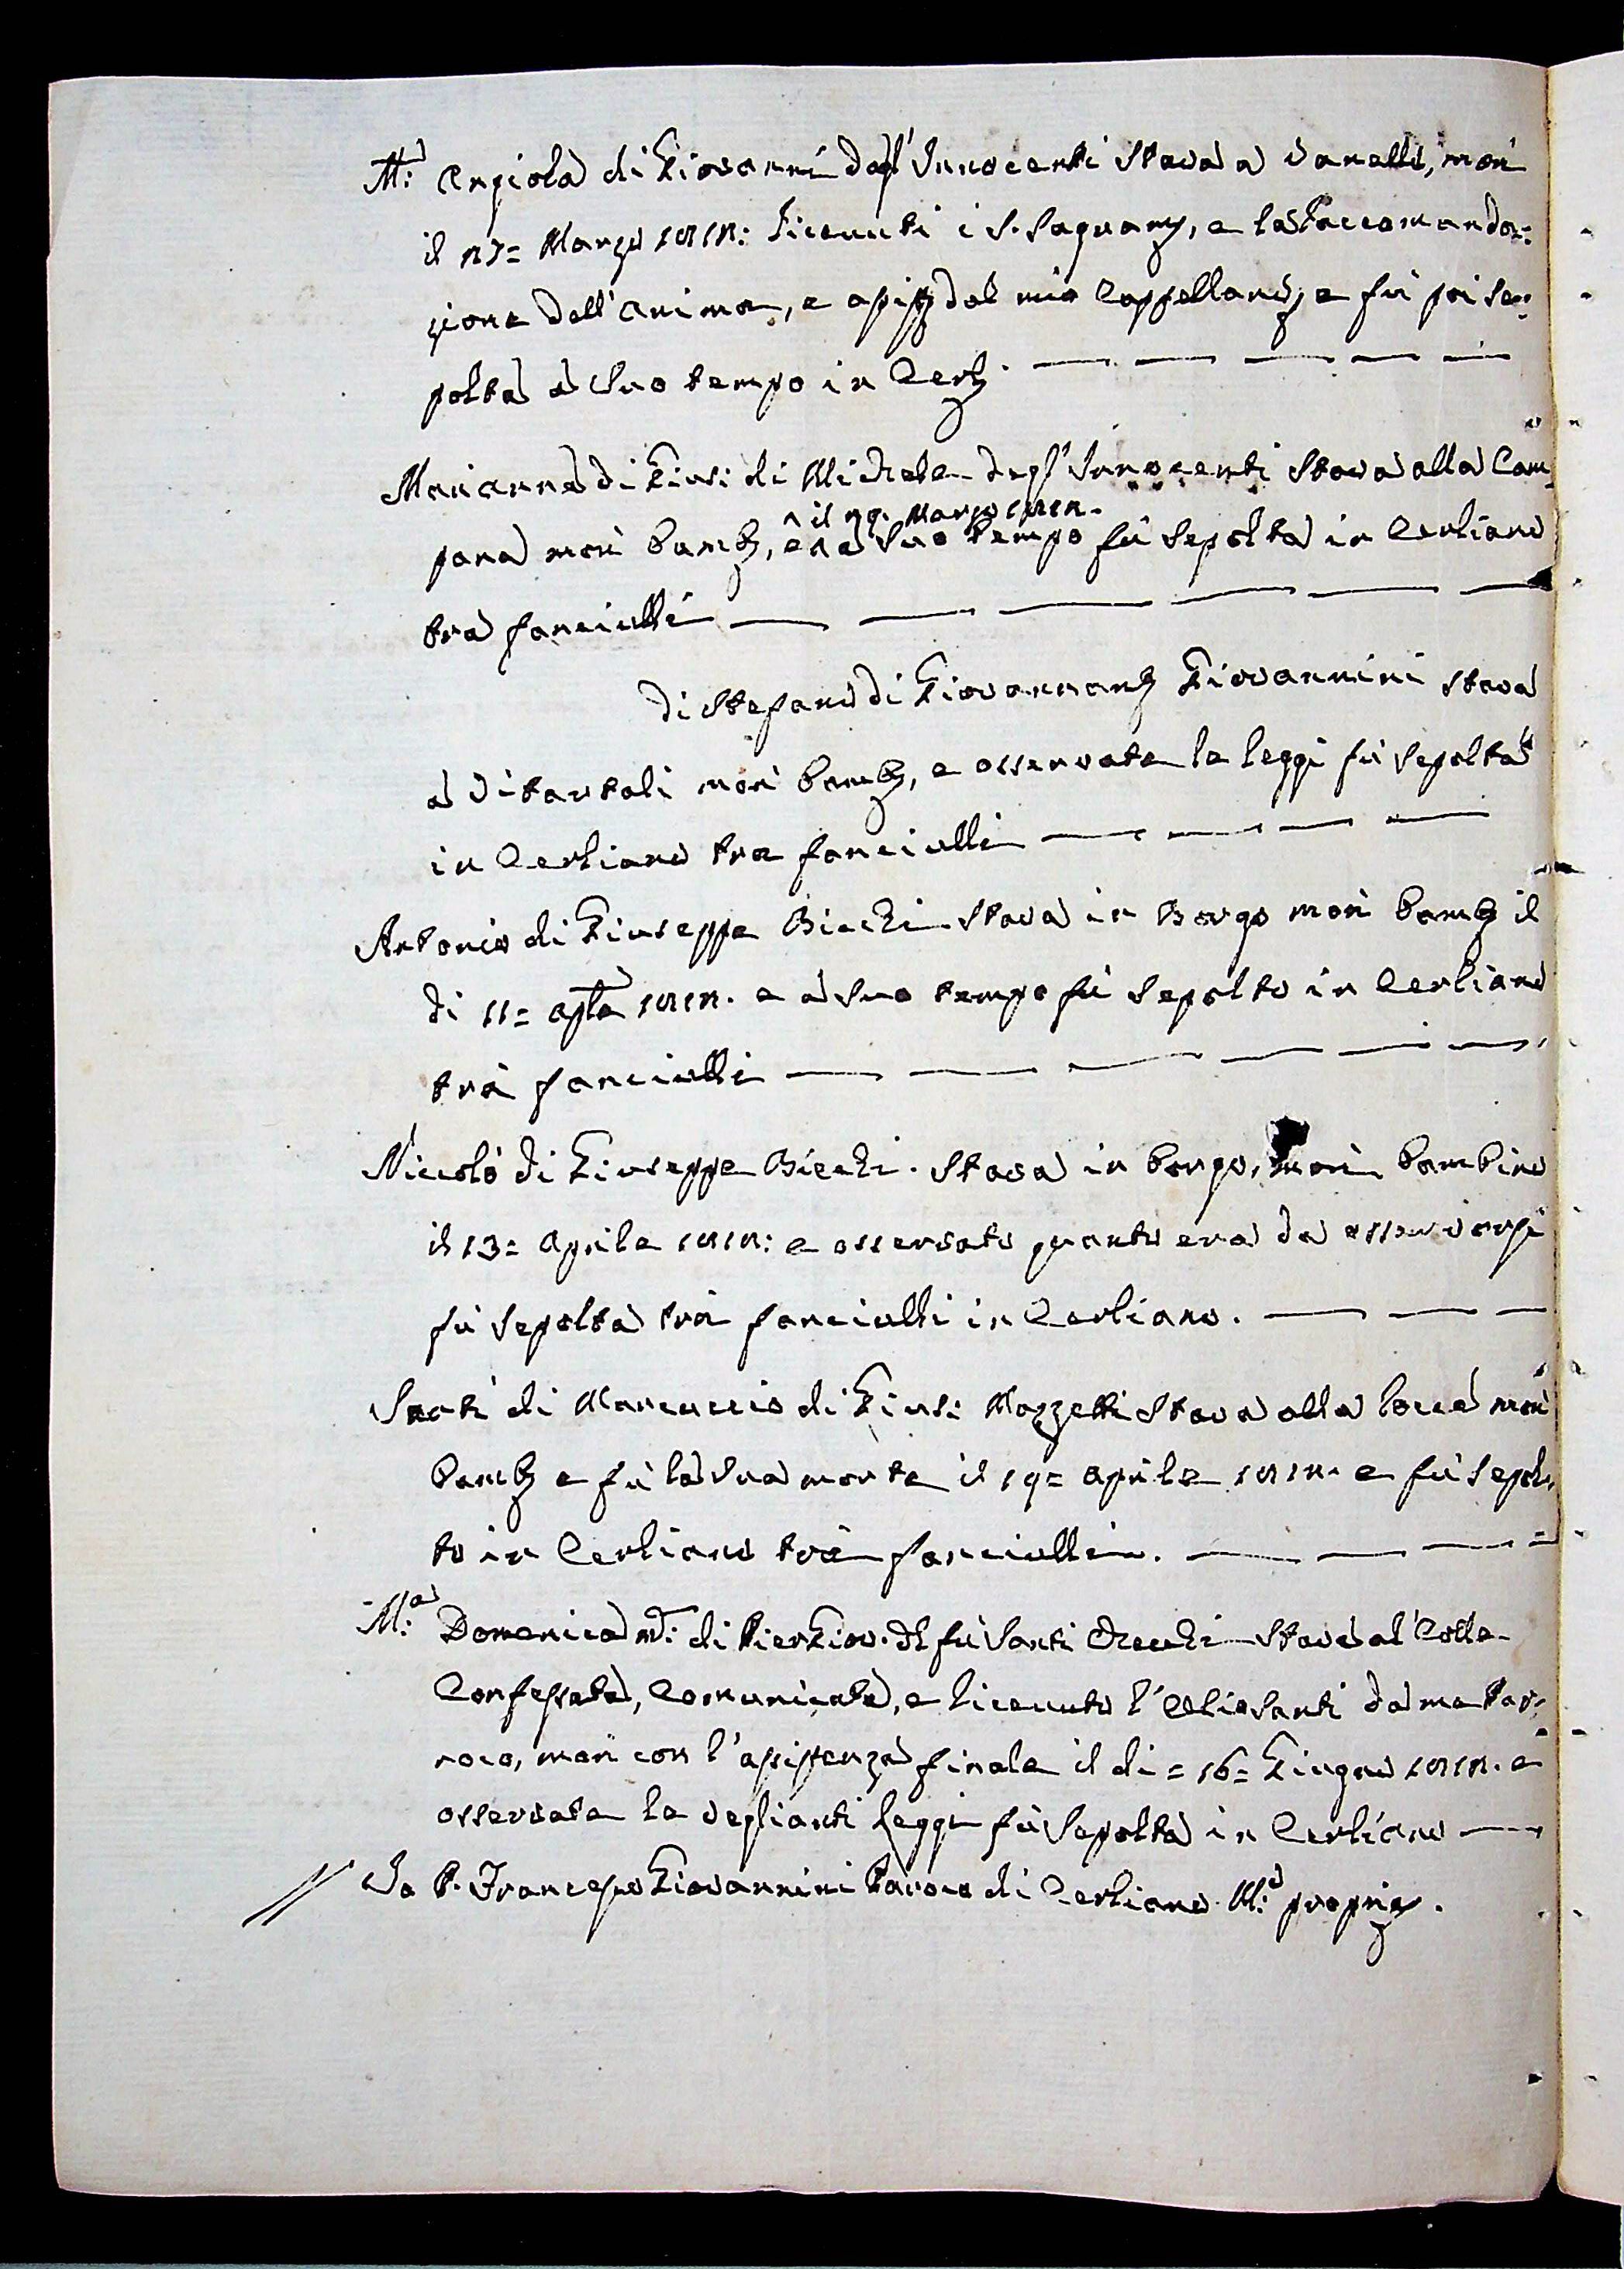 M:a Angiola di Giovanni degl'Innocenti stava a Vanelli, morì
il 27= Marzo 1812: ricevuti i S. Sagram, e la Raccomanda:
zione dell'anima, e assis dal mio Cappellano, e fù poi se:
polta a suo tempo in Cerl. — — — — —
Marianna di Gius: di Michele degl'Innocenti stava alla Cam
^ il 29. Marzo 1812.
pana morì bamb, e a suo tempo fù sepolta in Cerliano
tra fanciulli — — — — — —
di Stefano di Giovannant Giovannini stava
a Vitartali morì bamb, e osservate le leggi fù sepolta
in Cerliano tra fanciulli — — — —
Antonio di Giuseppe Biechi stava in Borgo morì bamb il
di 11= aple 1812. e a suo tempo fù sepolto in Cerliano
trà fanciulli — — — — — —
Niccolò di Giuseppe Biechi. stava in borgo, morì bambino
il 13= Aprile 1812: e osservato quanto era da osservarsi
fù sepolta trà fanciulli in Cerliano. — — —
Santi di Marcuccio di Gius: Mazzetti stava alla morì
bamb e fù la sua morte il 19= Aprile 1812. e fù sepol,
to in Cerliano trà fanciulli. — — — =
M:a Domenica m: di Pier Giov. del fù Santi stava al Colle
Confessata, Comunicata, e ricevuto l'Olio Santi da me Par:
roco, morì con l'assistenza finale il di = 16= Giugno 1812. e
osservate le veglianti leggi fù sepolta in Cerliano —
Io P. Francesco Giovannini Paroco di Cerliano M:a propria.